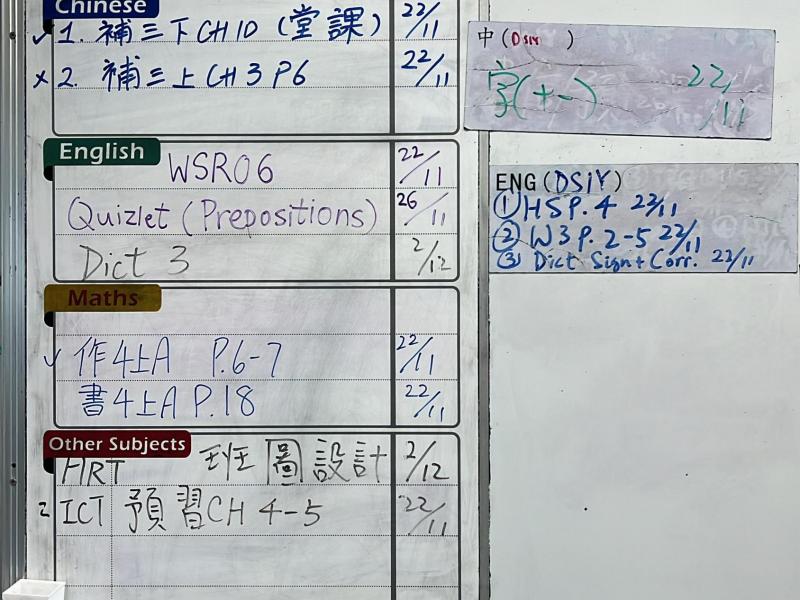 Chinese
✓ 1. 補三下CH10 (堂課) 22/11
x 2. 補三上CH3 P6 22/11
English
WSR06 22/11
Quizlet (Prepositions) 26/11
Dict 3 2/12
Maths
✓ 作4上A P.6-7 22/11
書4上A P.18 22/11
Other Subjects
HRT 班圖設計 2/12
2 ICT 預習CH 4-5 22/11
中(DSIY )
字(+-) 22/11
ENG(DSIY)
① HSP.4 22/11
② W3P.2-5 22/11
③ Dict Sign+Corr. 22/11